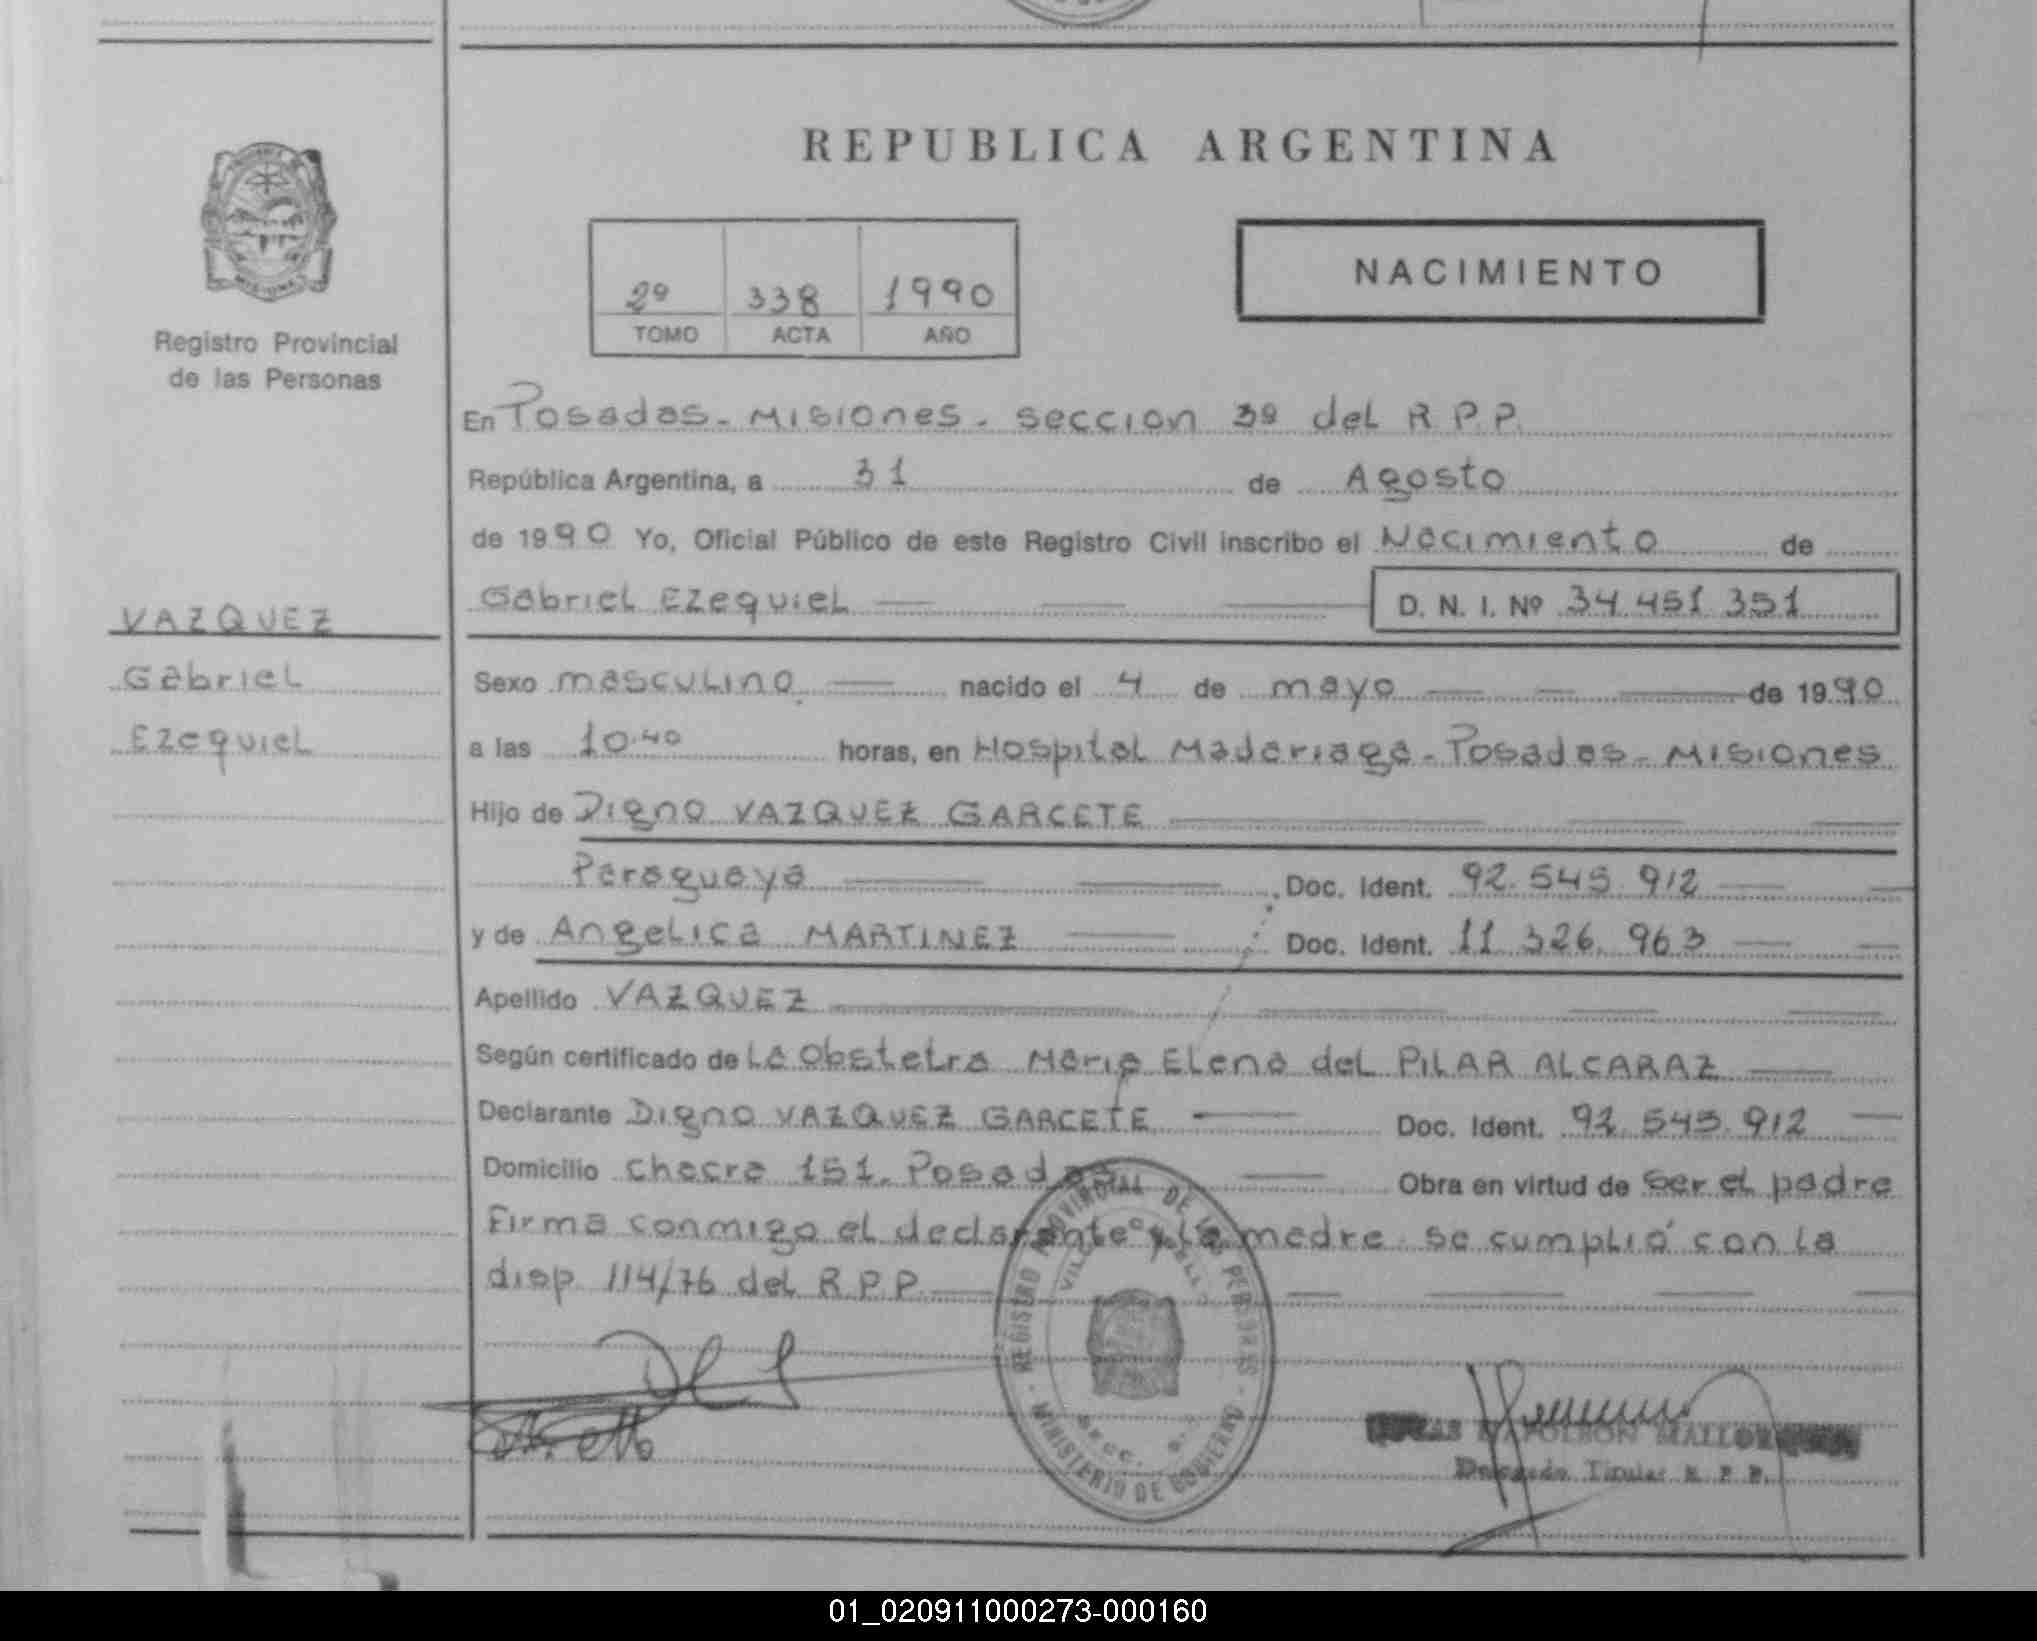 REPUBLICA ARGENTINA
2º 338 1990
TOMO ACTA AÑO
NACIMIENTO
Registro Provincial
de las Personas
VAZQUEZ
Gabriel
Ezequiel
En Posadas - Misiones - seccion 3ª del R.P.P.
República Argentina, a 31 de Agosto
de 1990 Yo, Oficial Público de este Registro Civil inscribo el Nacimiento de
Gabriel Ezequiel D. N. I. Nº 34.451.351
Sexo masculino nacido el 4 de mayo de 1990
a las 10.40 horas, en Hospital Madariaga - Posadas - Misiones
Hijo de Digno VAZQUEZ GARCETE
Paraguayo Doc. Ident. 92.545.912
y de Angelica MARTINEZ Doc. Ident. 11.326.963
Apellido VAZQUEZ
Según certificado de La Obstetra Maria Elena del PILAR ALCARAZ
Declarante Digno VAZQUEZ GARCETE Doc. Ident. 92.545.912
Domicilio chacra 151. Posadas Obra en virtud de ser el padre
Firma conmigo el declarante y la madre. se cumplió con la
disp. 114/76 del R.P.P.
REGISTRO PROVINCIAL DE LAS PERSONAS
MINISTERIO DE GOBIERNO
NAPOLEON
Titular R. P. P.
01_020911000273-000160